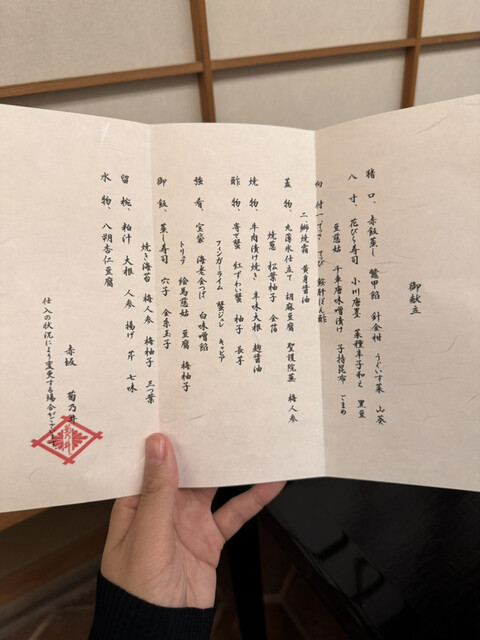 御献立
猪口、赤飯蒸し 鼈甲餡 針金柑 うぐいす菜 山葵
八寸、花びら寿司 小川唐墨 菜種辛子和え 黒豆
豆慈姑 千車唐味噌漬け 子持昆布 ごまめ
向付 一、 てさび 鮟肝ぽん酢
二、鰤焼霜 黄身醤油
蓋物、丸薄氷仕立て 胡麻豆腐 聖護院蕪 梅人参
焼葱 松葉柚子 金箔
焼物、牛肉漬け焼き 辛味大根 麹醤油
酢物、寄て蟹 紅ずわい蟹 柚子 長芋
フィンガーライム 蟹ジュレ キャビア
強肴、宝袋 海老金つば 白味噌餡
トリュフ 絵馬慈姑 豆腐 梅柚子
御飯、蒸し寿司 穴子 金糸玉子
焼き海苔 梅人参 梅柚子 三つ葉
留椀、粕汁 大根 人参 揚げ 芹 七味
水物、八朔杏仁豆腐
赤坂 菊乃井
仕入の状況により変更する場合がございます